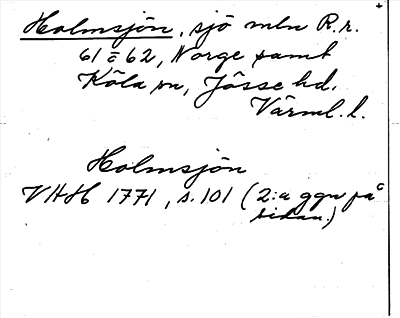 Holmsjön, sjö mln R.r.
61 o 62, Norge samt
Köla sn, Jösse hd.
Värml. l.
Holmsjön
VHH 1771, s. 101 (2:a ggn på
sidan.)